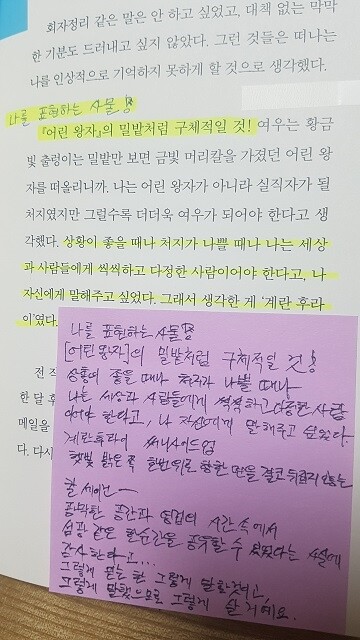 회자정리 같은 말은 안 하고 싶었고, 대책 없는 막막
한 기분도 드러내고 싶지 않았다. 그런 것들은 떠나는
나를 인상적으로 기억하지 못하게 할 것으로 생각했다.
나를 표현하는 사물
『어린 왕자』의 밀밭처럼 구체적일 것! 여우는 황금
빛 출렁이는 밀밭만 보면 금빛 머리칼을 가졌던 어린 왕
자를 떠올리니까. 나는 어린 왕자가 아니라 실직자가 될
처지였지만 그럴수록 더더욱 여우가 되어야 한다고 생
각했다. 상황이 좋을 때나 처지가 나쁠 때나 나는 세상
과 사람들에게 씩씩하고 다정한 사람이어야 한다고, 나
자신에게 말해주고 싶었다. 그래서 생각한 게 '계란 후라
이'였다.
전 직
한 달 후
메일을
다. 다시
나를 표현하는 사물
[어린왕자]의 밀밭처럼 구체적일 것!
상황이 좋을 때나 처지가 나쁠 때나
나는 세상과 사람들에게 씩씩하고 다정한 사람
이어야 한다고, 나 자신에게 말해주고 싶었다.
계란후라이 써니사이드업
햇빛 밝은 쪽 한번 위로 향한 면을 결코 뒤집지 않는
칼 세이건 –
광막한 공간과 영겁의 시간 속에서
섬광 같은 한순간을 공유할 수 있었다는 사실에
감사한다고...
그렇게 믿는 한 그렇게 말할것이고,
그렇게 말했으므로 그렇게 살 거예요.